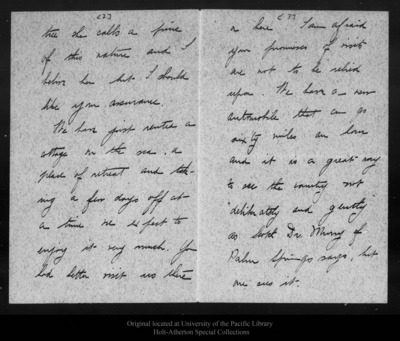 (2)
tree she calls a pine
of this nature and I
believe her but I should
like your assurance.
We have just rented a
cottage on the sea, a
place of retreat and
a few days off at
a time we expect to
enjoy it very much. You
had better visit us there
(3)
or here. I am afraid
your promises of visits
are not to be relied
upon. We have a new
automobile that can go
sixty miles an hour
and it is a great way
to see the country not
"deliberately and gently"
as Dr. Murry of
Palm Springs says, but
one sees it.
Original located at University of the Pacific Library
Holt-Atherton Special Collections